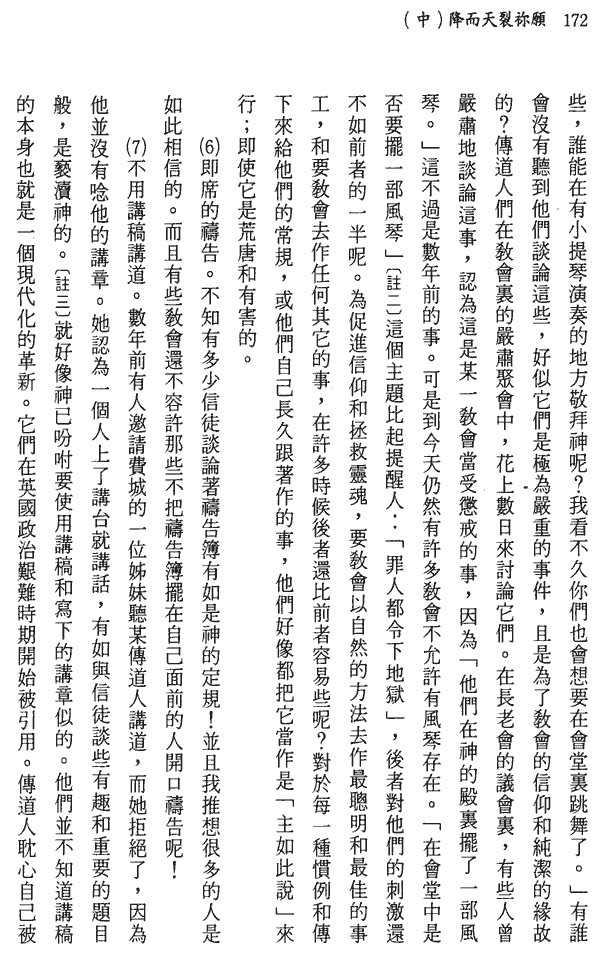 172　願祢裂天而降(中)
些，誰能在有小提琴演奏的地方敬拜神呢？我看不久你們也會想要在會堂裏跳舞了。」有誰
會沒有聽到他們談論這些，好似它們是極為嚴重的事件，且是為了教會的信仰和純潔的緣故
的？傳道人們在教會裏的嚴肅聚會中，花上數日來討論它們。在長老會的議會裏，有些人曾
嚴肅地談論這事，認為這是某一教會當受懲戒的事，因為「他們在神的殿裏擺了一部風
琴。」這不過是數年前的事。可是到今天仍然有許多教會不允許有風琴存在。「在會堂中是
否要擺一部風琴」〔註二〕這個主題比起提醒人：「罪人都令下地獄」，後者對他們的刺激還
不如前者的一半呢。為促進信仰和拯救靈魂，要教會以自然的方法去作最聰明和最佳的事
工，和要教會去作任何其它的事，在許多時候後者還比前者容易些呢？對於每一種慣例和傳
下來給他們的常規，或他們自己長久跟著作的事，他們好像都把它當作是「主如此說」來
行；即使它是荒唐和有害的。
(6)即席的禱告。不知有多少信徒談論著禱告簿有如是神的定規！並且我推想很多的人是
如此相信的。而且有些教會還不容許那些不把禱告簿擺在自己面前的人開口禱告呢！
(7)不用講稿講道。數年前有人邀請費城的一位姊妹聽某傳道人講道，而她拒絕了，因為
他並沒有唸他的講章。她認為一個人上了講台就講話，有如與信徒談些有趣和重要的題目
般，是褻瀆神的。〔註三〕就好像神已吩咐要使用講稿和寫下的講章似的。他們並不知道講稿
的本身也就是一個現代化的革新。它們在英國政治艱難時期開始被引用。傳道人耽心自己被